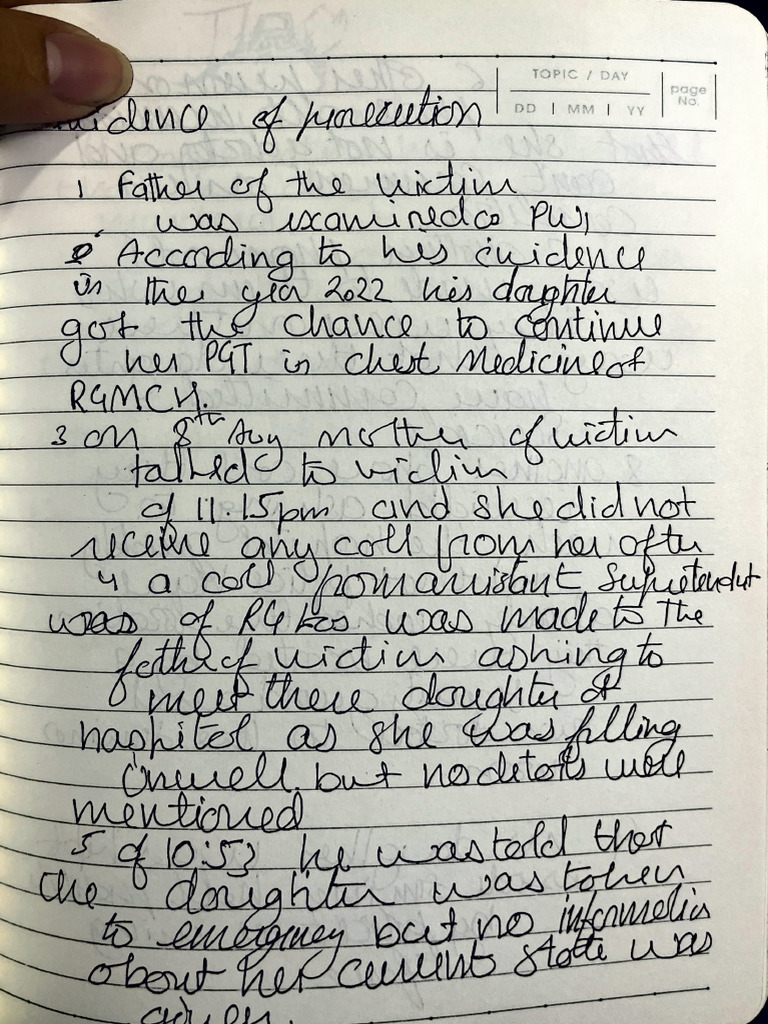 TOPIC / DAY
DD | MM | YY
page No.
idence of prosecution
1 Father of the victim
was examined as PW1
2 According to his evidence
in the year 2022 his daughter
got the chance to continue
her PGT in chest Medicine of
RGMCH.
3 on 8th Aug mother of victim
talked to victim
at 11.15pm and she did not
receive any call from her after
4 a call from assistant Supretendut
of RG was made to the
father of victim asking to
meet there daughter at
hospital as she was filling
unwell. but no details were
mentioned
5 at 10:53 he was told that
the daughter was taken
to emergency but no information
about her current state was
given.